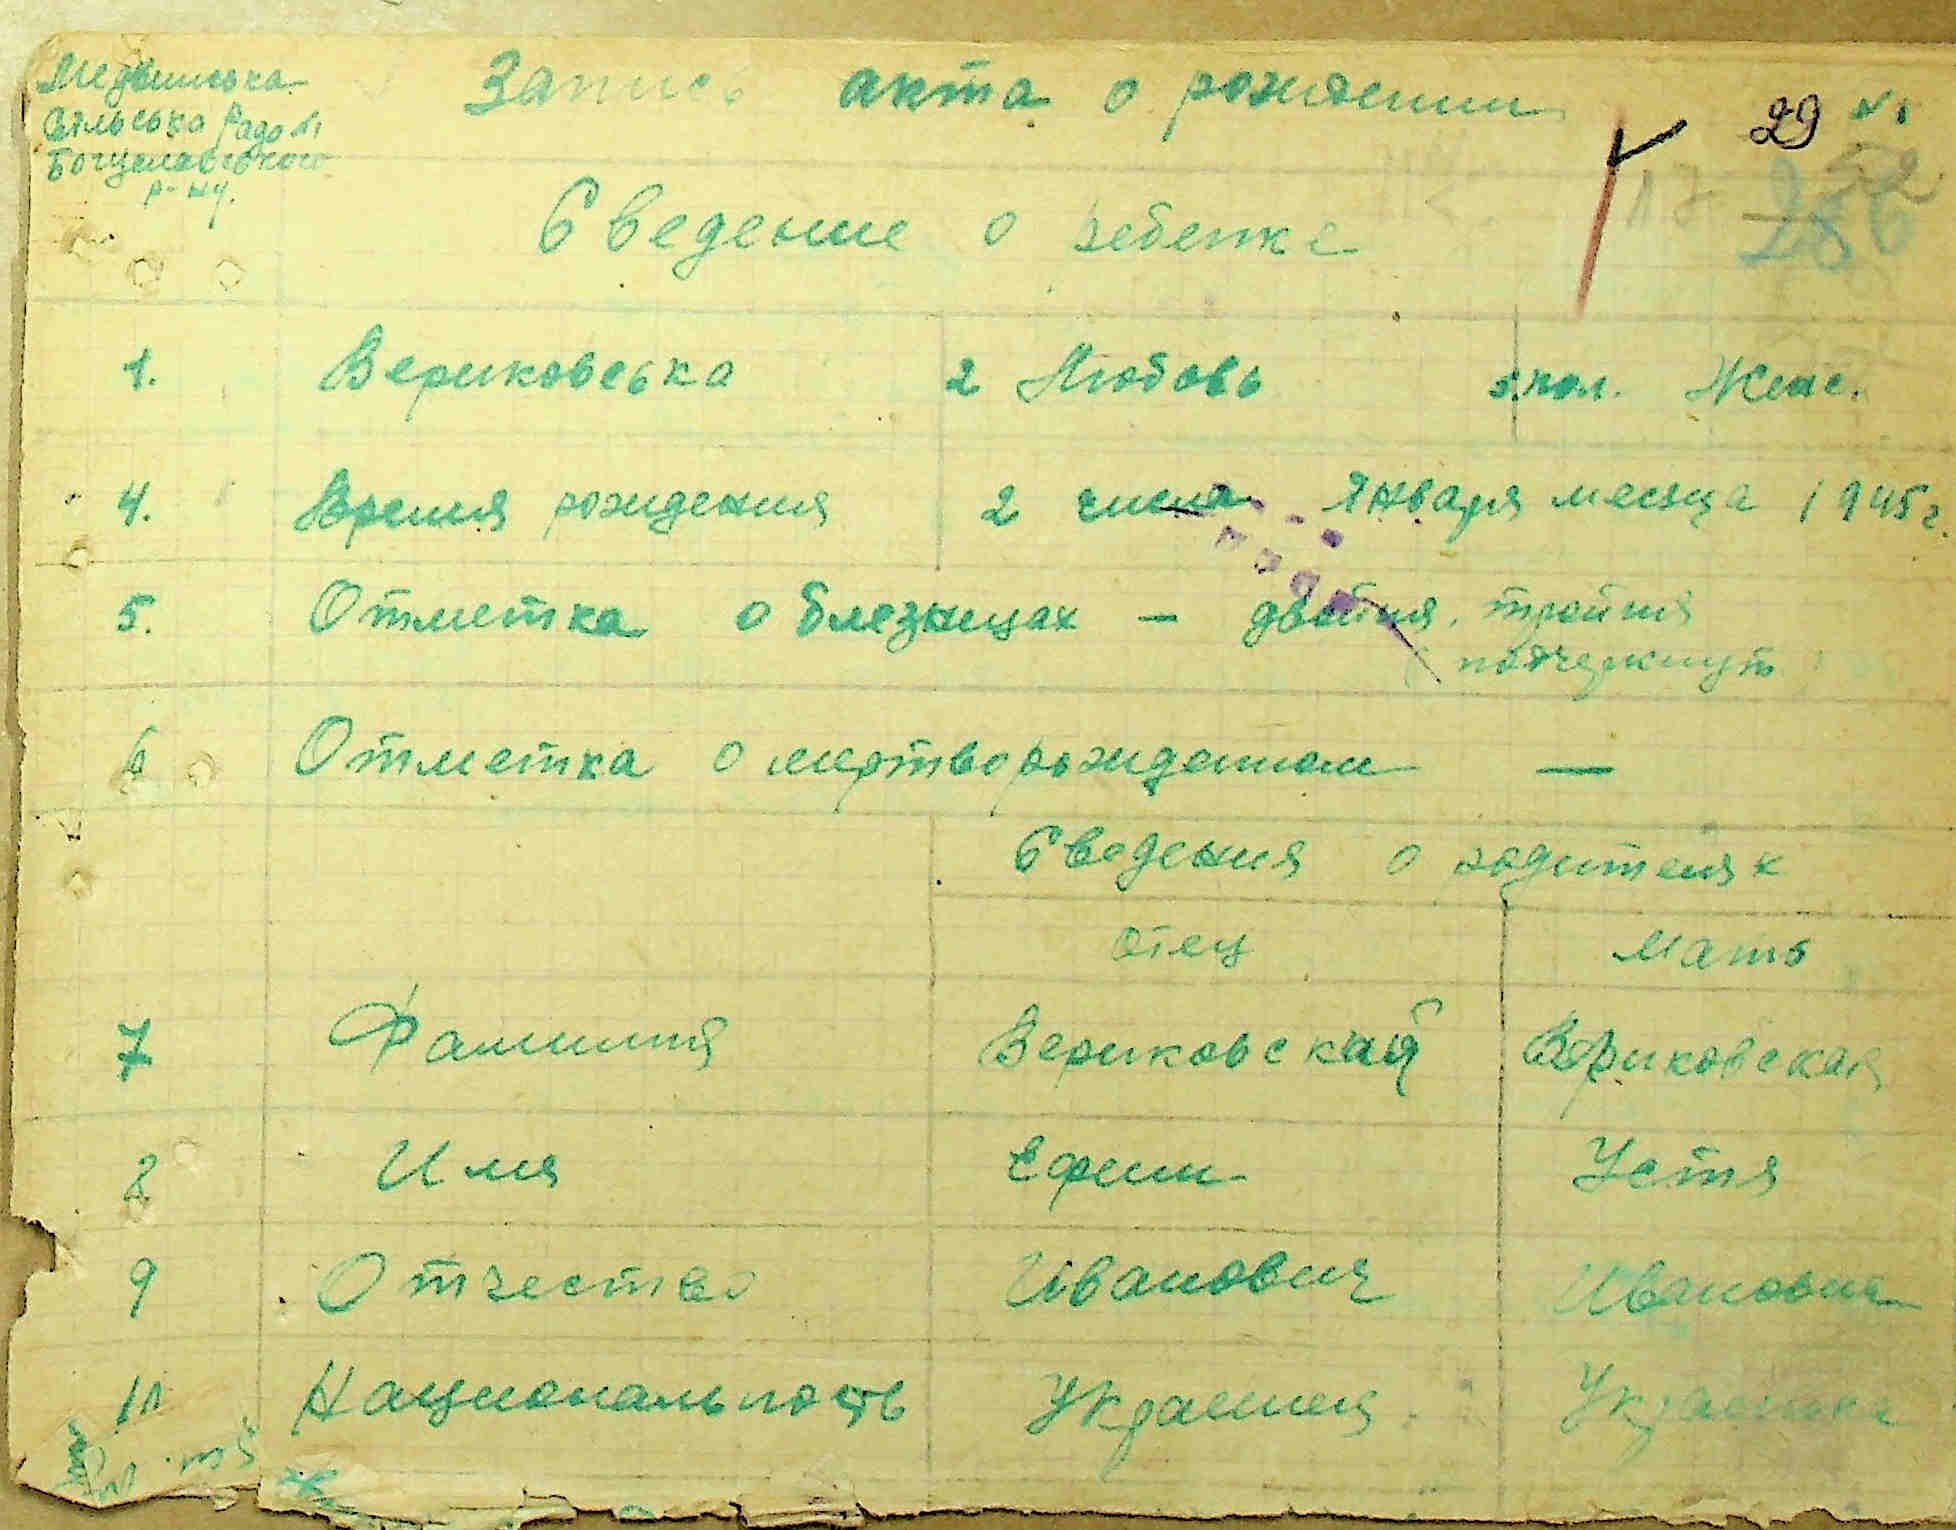 Медвинська
Сільська Рада
Богуславського
р-ну.
Запись акта о рождении
29 №
286
Сведение о ребенке
1. Вериковська 2 Любовь 3. пол. Женс.
4. Время рождения 2 числа Января месяца 1945 г.
5. Отметка о близницах – двойня, тройня
(подчеркнуть)
6 Отметка о мертворожденном —
Сведения о родителях
Отец Мать
7 Фамилия Вериковский Вериковская
8 Имя Ефим Устя
9 Отчество Иванович Ивановна
10 Национальность Украинец Украинка